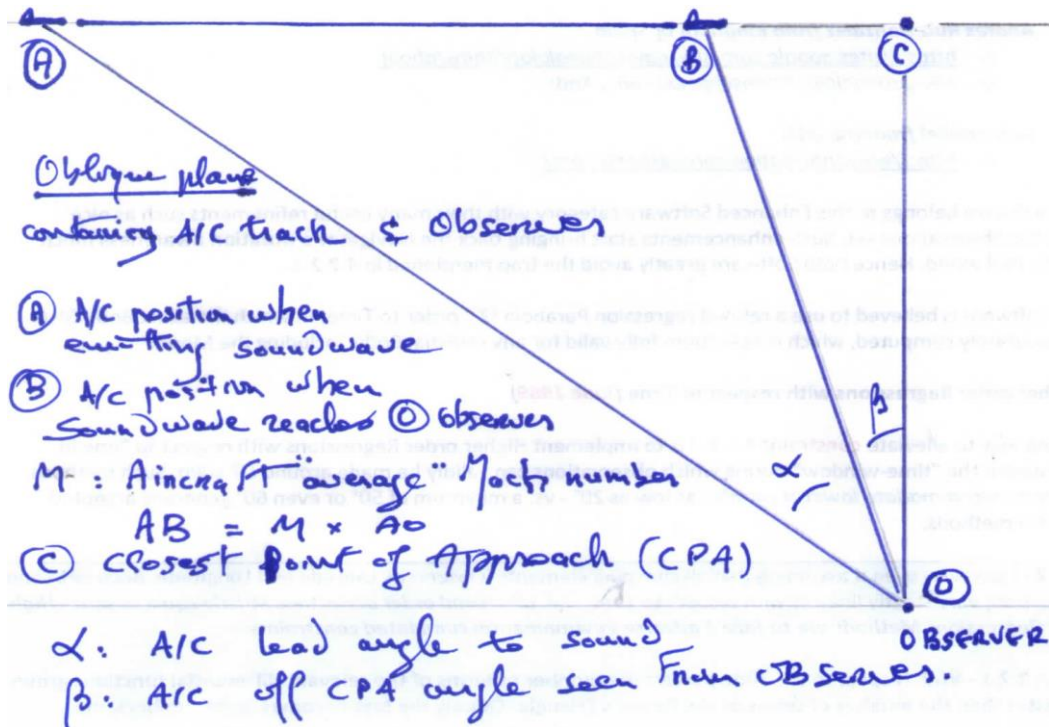 A
B
C
Oblique plane
containing A/C track & Observer
A A/C position when
emitting soundwave
B A/C position when
soundwave reaches O observer
M : Aircraft average "Mach number"
AB = M x AO
C closest Point of Approach (CPA)
α : A/C lead angle to sound
β : A/C off CPA angle seen From OBserver
α
β
O
OBSERVER